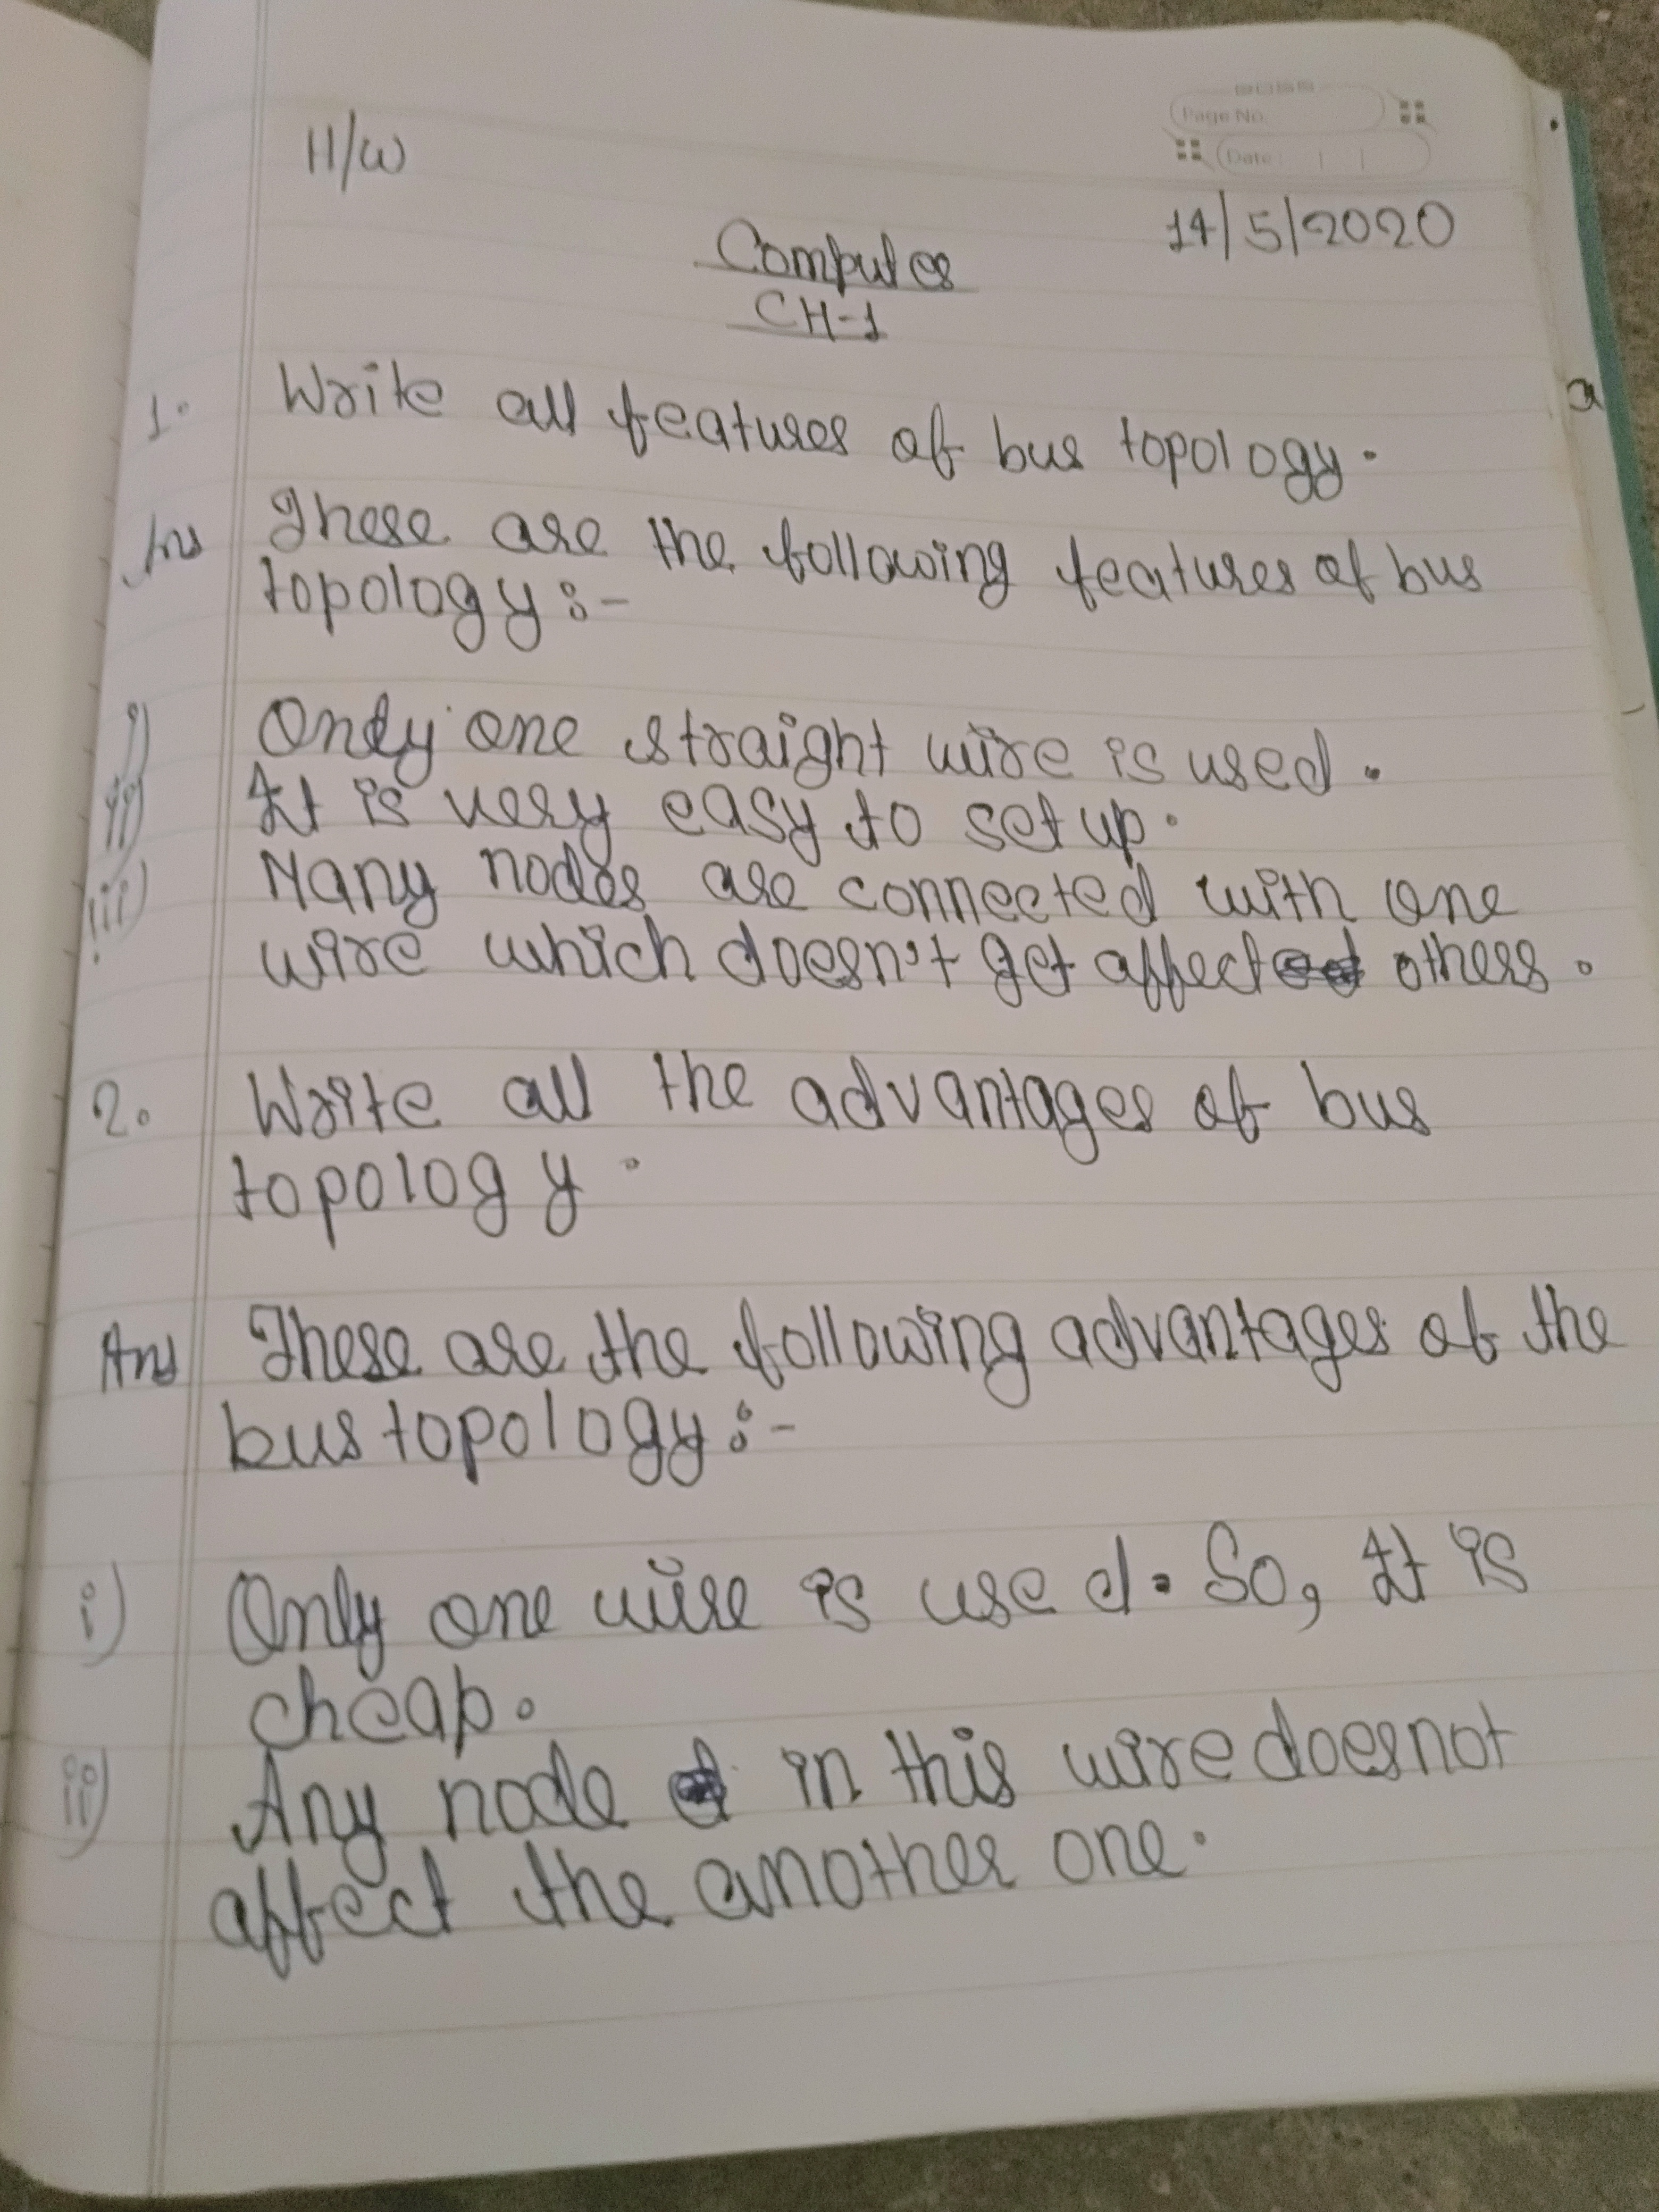 Page No.
Date:
H/W
14/5/2020
Computer
CH-1
1. Write all features of bus topology.
Ans These are the following features of bus
topology :-
i) Only one straight wire is used.
ii) It is very easy to set up.
iii) Many nodes are connected with one
wire which doesn't get affect others.
2. Write all the advantages of bus
topology.
Ans These are the following advantages of the
bus topology :-
i) Only one wire is used. So, It is
cheap.
ii) Any node in this wire does not
affect the another one.